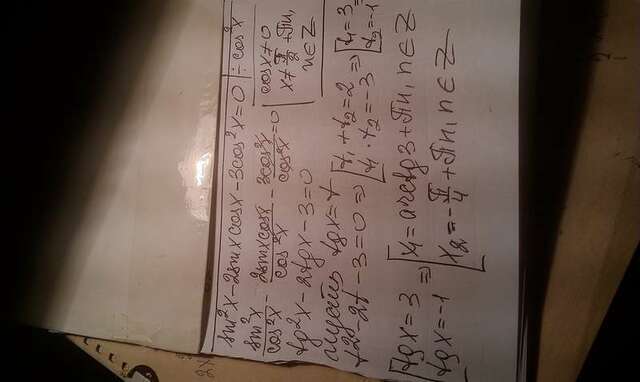 sin²x-2sinxcosx-3cos²x=0 | ÷cos²x
sin²x/cos²x - 2sinxcosx/cos²x - 3cos²x/cos²x =0 | cosx≠0
x≠π/2+πn,
n∈Z
tg²x-2tgx-3=0
пусть tgx=t
t²-2t-3=0 ⇒ [t₁+t₂=2 ⇒ [t₁=3
t₁·t₂=-3 t₂=-1
[tgx=3 ⇒ [x₁=arctg3+πn, n∈Z
tgx=-1 x₂=-π/4+πn, n∈Z